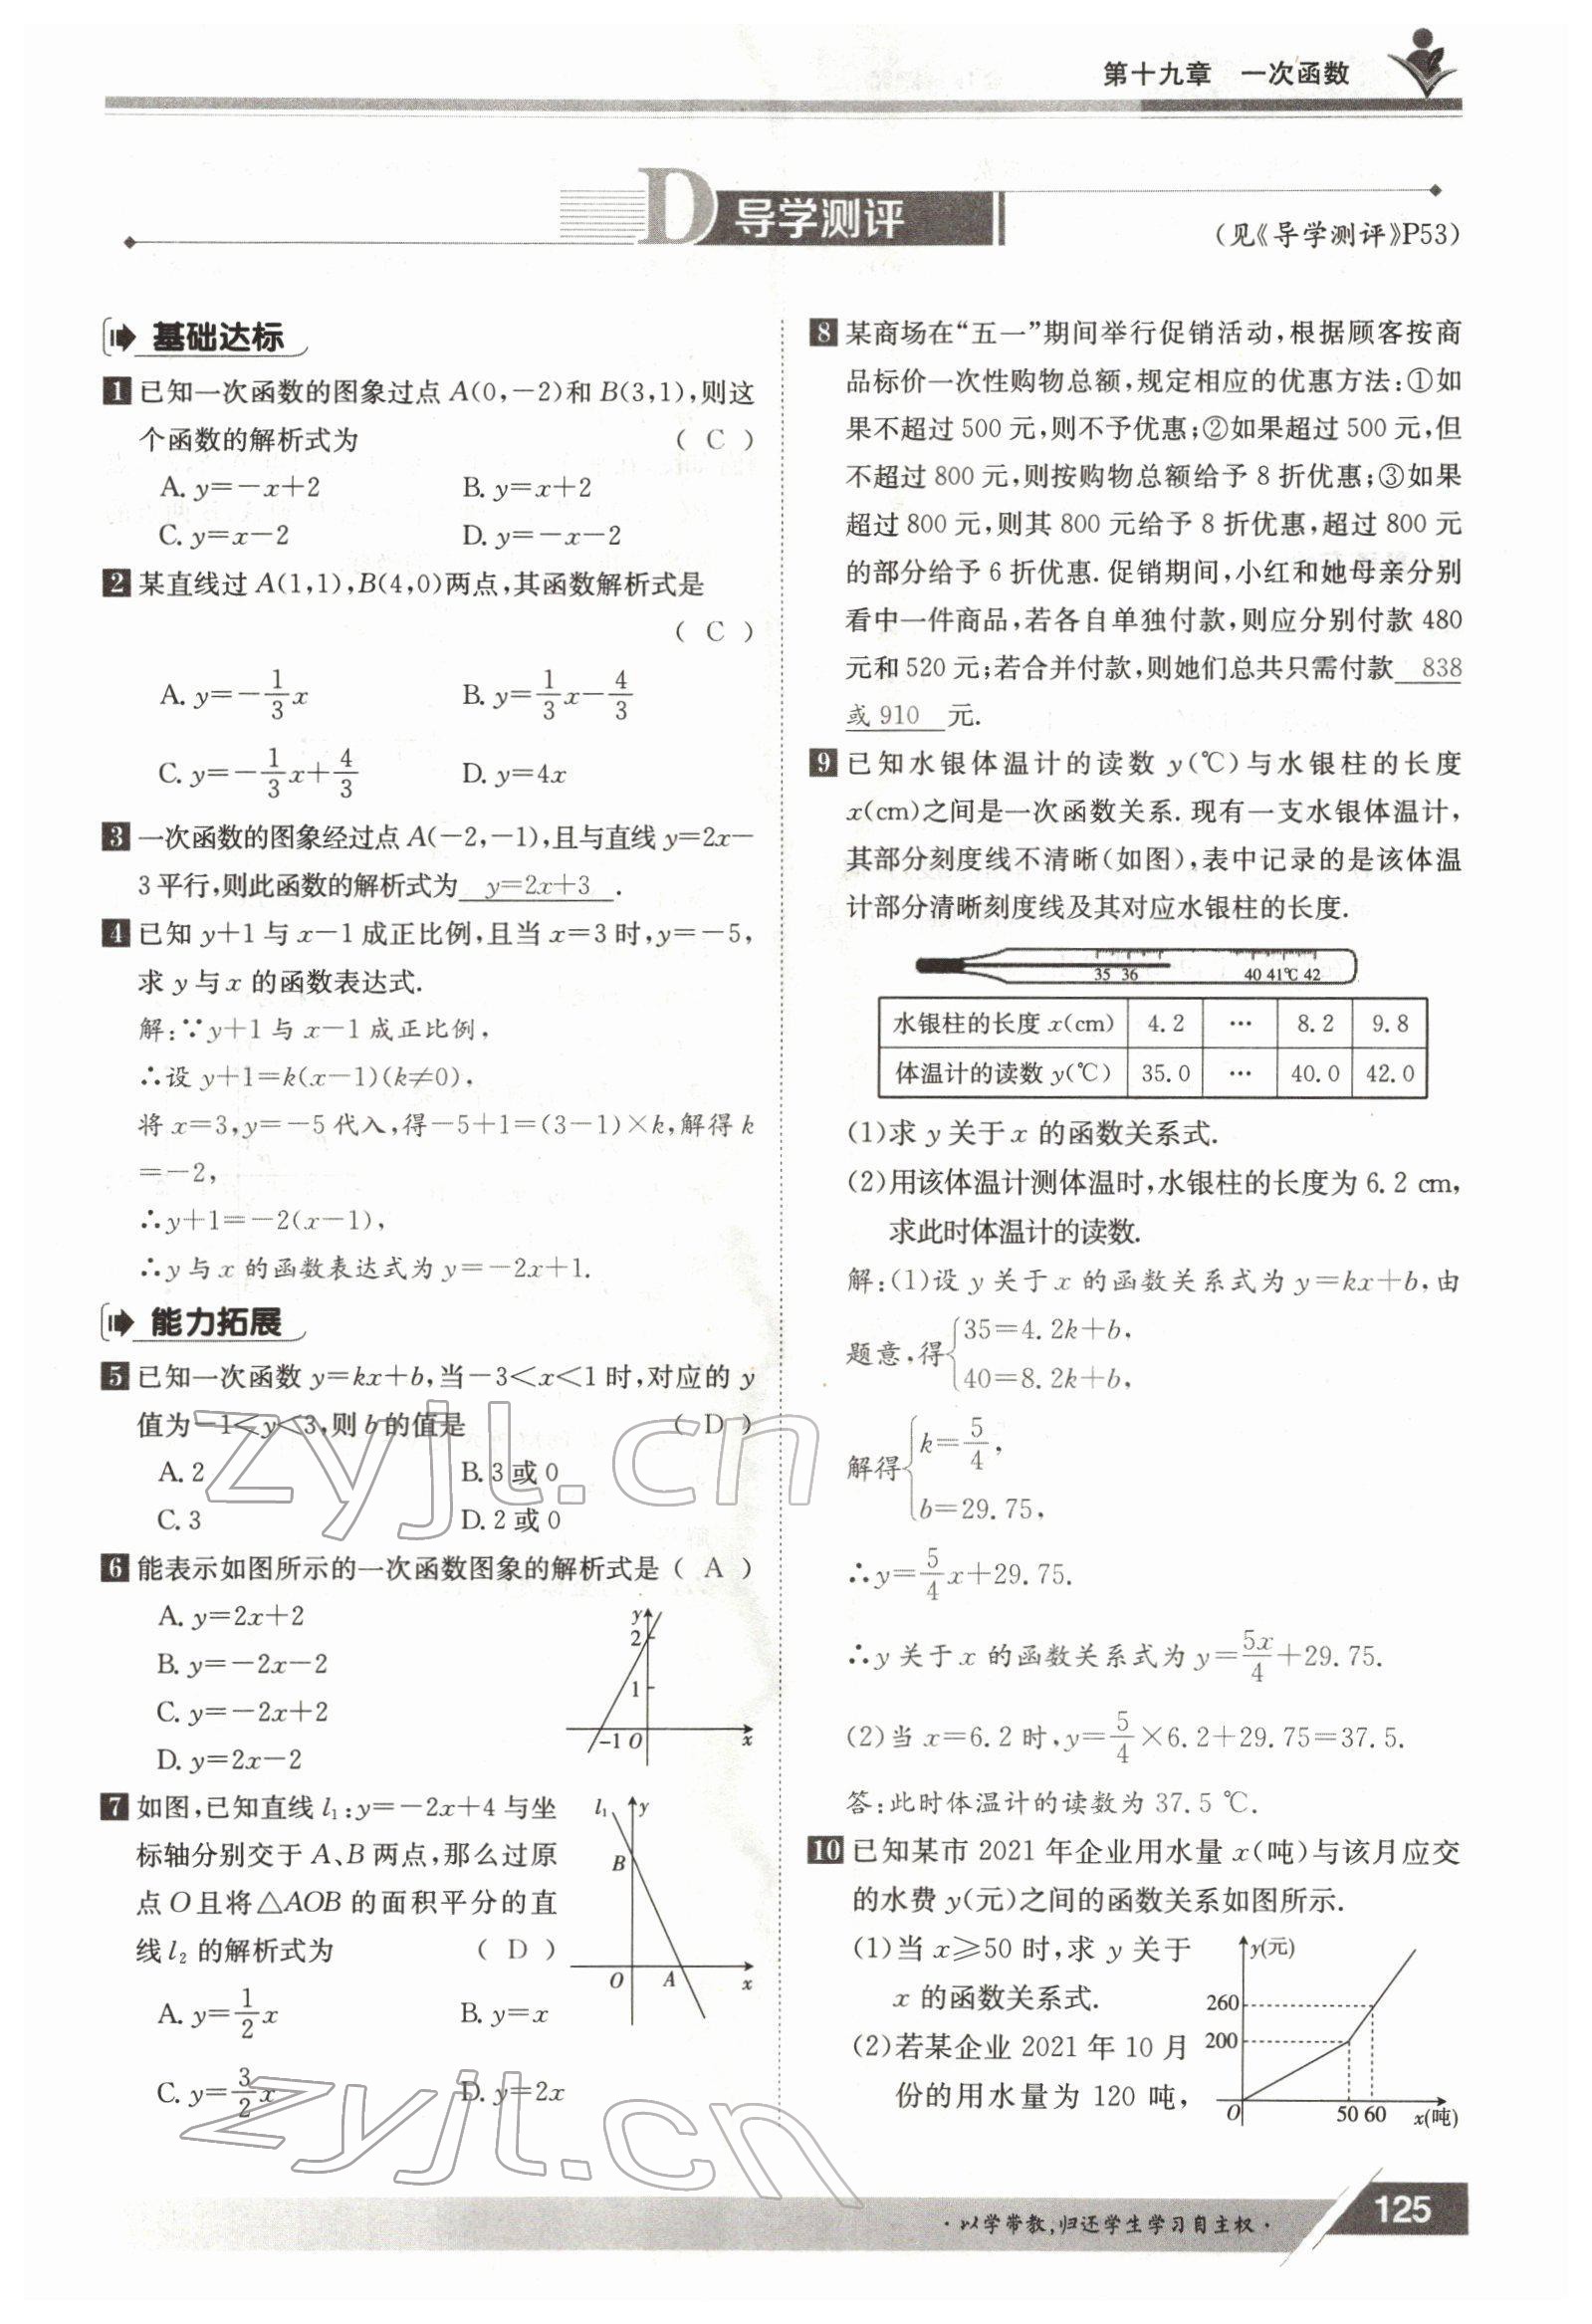 第十九章　一次函数
D 导学测评
(见《导学测评》P53)
基础达标
1 已知一次函数的图象过点 A(0,-2)和 B(3,1),则这
个函数的解析式为 ( C )
A. y=-x+2 B. y=x+2
C. y=x-2 D. y=-x-2
2 某直线过 A(1,1),B(4,0)两点,其函数解析式是
( C )
A. y=-1/3x B. y=1/3x-4/3
C. y=-1/3x+4/3 D. y=4x
3 一次函数的图象经过点 A(-2,-1),且与直线 y=2x-
3平行,则此函数的解析式为 y=2x+3 .
4 已知 y+1 与 x-1 成正比例,且当 x=3 时,y=-5,
求 y 与 x 的函数表达式.
解:∵y+1 与 x-1 成正比例,
∴设 y+1=k(x-1)(k≠0),
将 x=3,y=-5 代入,得-5+1=(3-1)×k,解得 k
=-2,
∴y+1=-2(x-1),
∴y 与 x 的函数表达式为 y=-2x+1.
能力拓展
5 已知一次函数 y=kx+b,当-3<x<1 时,对应的 y
值为-1<y<3,则 b 的值是 ( D )
A. 2 B. 3 或 0
C. 3 D. 2 或 0
6 能表示如图所示的一次函数图象的解析式是 ( A )
A. y=2x+2
B. y=-2x-2
C. y=-2x+2
D. y=2x-2
y
2
1
-1 O x
7 如图,已知直线 l₁:y=-2x+4 与坐
标轴分别交于 A、B 两点,那么过原
点 O 且将△AOB 的面积平分的直
线 l₂ 的解析式为 ( D )
l₁ y
B
O A x
A. y=1/2x B. y=x
C. y=3/2x D. y=2x
8 某商场在“五一”期间举行促销活动,根据顾客按商
品标价一次性购物总额,规定相应的优惠方法:①如
果不超过 500 元,则不予优惠;②如果超过 500 元,但
不超过 800 元,则按购物总额给予 8 折优惠;③如果
超过 800 元,则其 800 元给予 8 折优惠,超过 800 元
的部分给予 6 折优惠. 促销期间,小红和她母亲分别
看中一件商品,若各自单独付款,则应分别付款 480
元和 520 元;若合并付款,则她们总共只需付款 838
或 910 元.
9 已知水银体温计的读数 y(℃)与水银柱的长度
x(cm)之间是一次函数关系. 现有一支水银体温计,
其部分刻度线不清晰(如图),表中记录的是该体温
计部分清晰刻度线及其对应水银柱的长度.
35 36 40 41℃ 42
水银柱的长度 x(cm) 4.2 … 8.2 9.8
体温计的读数 y(℃) 35.0 … 40.0 42.0
(1)求 y 关于 x 的函数关系式.
(2)用该体温计测体温时,水银柱的长度为 6.2 cm,
求此时体温计的读数.
解:(1)设 y 关于 x 的函数关系式为 y=kx+b,由
题意,得{35=4.2k+b,
40=8.2k+b,
解得{k=5/4,
b=29.75,
∴y=5/4x+29.75.
∴y 关于 x 的函数关系式为 y=5x/4+29.75.
(2)当 x=6.2 时,y=5/4×6.2+29.75=37.5.
答:此时体温计的读数为 37.5 ℃.
10 已知某市 2021 年企业用水量 x(吨)与该月应交
的水费 y(元)之间的函数关系如图所示.
(1)当 x≥50 时,求 y 关于
x 的函数关系式.
(2)若某企业 2021 年 10 月
份的用水量为 120 吨,
y(元)
260
200
O 50 60 x(吨)
zyjl.cn
zyjl.cn
·以学带教,归还学生学习自主权·
125